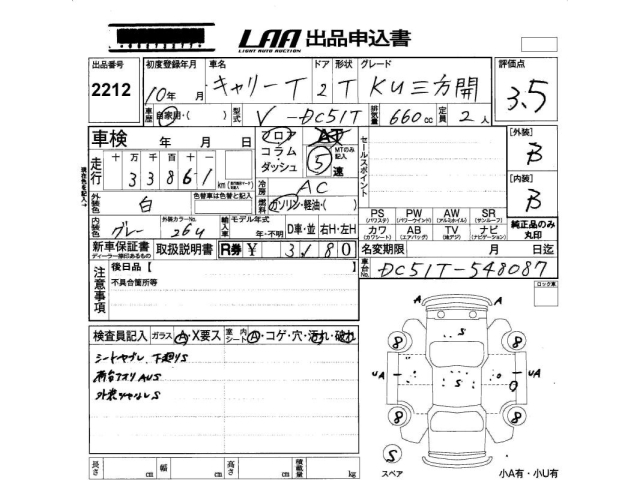 LAA 出品申込書
LIGHT AUTO AUCTION
出品番号 初度登録年月 車名 ドア 形状 グレード 評価点
2212 10年 月 キャリーT 2 T KU三方開 3.5
車歴 自家用・( ) 型式 V-DC51T 排気量 660cc 定員 2人
車検 年 月 日 フロア AT
コラム・ダッシュ MTのみ記入 5 速
セールスポイント
[外装] B
[内装] B
走行 十 万 千 百 十 一
33861 km
現在色を記入
冷房 AC
外装色 白 色替車は色替と記入 燃料 ガソリン・軽油・( )
内装色 グレー 外装カラーNo. 26U 輸入車 モデル年式 年・不明 D車・並 右H・左H
PS (パワステ) PW (パワーウインド) AW (アルミホイル) SR (サンルーフ)
カワ (カワシート) AB (エアバッグ) TV (地デジ) ナビ (ナビゲーション)
純正品のみ丸印
新車保証書 ディーラー捺印あるもの 取扱説明書 R券 ¥ 3180
名変期限 月 日迄
車台No. DC51T-548087
注意事項 後日品【
不具合箇所等
ロック車
検査員記入 ガラス A・X要ス 室内シート A・コゲ・穴・汚れ・破れ
シートヤブレ、下廻りS
荷台アオリAUS
S
8 8
UA S UA
8 8
S
スペア
小A有・小U有
長さ cm 幅 cm 高さ cm 積載量 kg